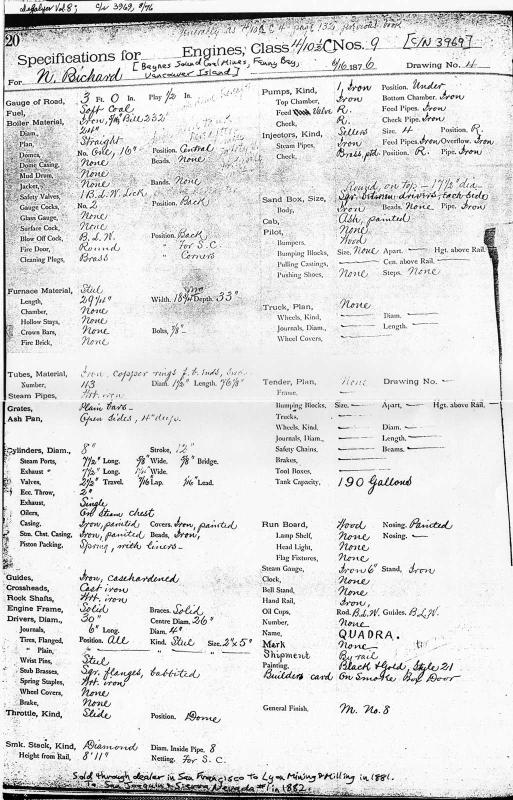 20
Specifications for Engines, Class 4/10½ C Nos. 9 [C/N 3969]
For N. Bichard [Baynes Sound Coal Mines, Fanny Bay, Vancouver Island] 6/16 1876 Drawing No. 4
Gauge of Road, 3 Ft. 0 In. Play 1/2 In.
Fuel, Soft Coal
Boiler Material, Iron, ⅜" Bill 232
Diam., 24"
Plan, Straight
Domes, No. One, 16" Position. Central
Dome Casing, None Beads. None
Mud Drum, None
Jacket, None Bands. None
Safety Valves, 1 B.L.W. Lick
Gauge Cocks, No. 2 Position. Back
Glass Gauge, None
Surface Cock, None
Blow Off Cock, B.L.W. Position. Back
Fire Door, Round For S.C.
Cleaning Plugs, Brass " Corners
Furnace Material, Steel
Length, 29⁷⁄₁₆" Width. 18 Depth. 33"
Chamber, None
Hollow Stays, None
Crown Bars, None Bolts, 7/8"
Fire Brick, None
Tubes, Material, Iron, copper rings f.b. ends,
Number, 113 Diam. 1½" Length. 76⅞"
Steam Pipes, Wrt. iron
Grates, Plain bars
Ash Pan, Open sides, 4" deep.
Cylinders, Diam., 8" Stroke, 12"
Steam Ports, 7½" Long. ⅝" Wide. ⅝" Bridge.
Exhaust " 7½" Long. Wide.
Valves, 2½" Travel. 7/16 Lap. 1/16" Lead.
Ecc. Throw, 2"
Exhaust, Single
Oilers, On steam chest
Casing, Iron, painted Covers. Iron, painted
Stm. Chst. Casing, Iron, painted Beads, Iron,
Piston Packing, Spring, with liners
Guides, Iron, casehardened
Crossheads, Cast iron
Rock Shafts, Wrt. iron
Engine Frame, Solid Braces. Solid
Drivers, Diam., 30" Centre Diam. 26"
Journals, 6" Long. Diam. 4"
Tires, Flanged, Position. All Kind. Steel Size. 2"x5"
" Plain, " — " — " —
Wrist Pins, Steel
Stub Brasses, Sqr. flanges, babbited
Spring Staples, Wrt. iron
Wheel Covers, None
Brake, None
Throttle, Kind, Slide Position. Dome
Smk. Stack, Kind, Diamond Diam. Inside Pipe. 8
Height from Rail, 8' 11" Netting. For S.C.
Pumps, Kind, 1, Iron Position. Under
Top Chamber, Iron Bottom Chamber. Iron
Feed Valve R. Feed Pipes. Iron
Check, R. Check Pipe. Iron
Injectors, Kind, Sellers Size. 4 Position. R.
Steam Pipes, Iron Feed Pipes. Iron Overflow. Iron
Check, Brass, ptd. Position. R. Pipe. Iron
Round, on Top – 17½" dia.
Sand Box, Size, Sqr. between drivers, Each side
Body, Iron Beads. None Pipe. Iron
Cab, Ash, painted
Pilot, None
Bumpers, Wood
Bumping Blocks, Size, None Apart. — Hgt. above Rail. —
Pulling Castings, — Cen. above Rail. —
Pushing Shoes, None Steps. None
Truck, Plan, None
Wheels, Kind, — Diam. —
Journals, Diam., — Length. —
Wheel Covers, —
Tender, Plan, None Drawing No. —
Frame, —
Bumping Blocks, Size. — Apart, — Hgt. above Rail, —
Trucks, —
Wheels, Kind, — Diam. —
Journals, Diam., — Length. —
Safety Chains, — Beams. —
Brakes, —
Tool Boxes, —
Tank Capacity, 190 Gallons
Run Board, Wood Nosing. Painted
Lamp Shelf, None Nosing. —
Head Light, None
Flag Masts, None
Steam Gauge, Iron 6" Stand, Iron
Clock, None
Bell Stand, None
Hand Rail, Iron,
Oil Cups, Rod. B.L.W. Guides. B.L.W.
Number, None
Name, QUADRA.
Mark None
Shipment By rail
Painting, Black & Gold, Style 21
Builders card On Smoke Box Door
General Finish, M. No. 8
Sold through dealer in San Francisco to Lyon Mining & Milling in 1881.
To San Joaquin & Sierra Nevada #1 in 1882.